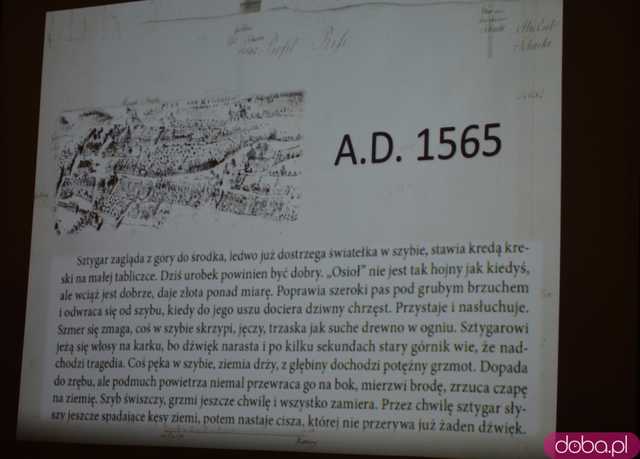 Profil Riss
A.D. 1565
Sztygar zagląda z góry do środka, ledwo już dostrzega światełka w szybie, stawia kredą kre-
ski na małej tabliczce. Dziś urobek powinien być dobry. „Osioł" nie jest tak hojny jak kiedyś,
ale wciąż jest dobrze, daje złota ponad miarę. Poprawia szeroki pas pod grubym brzuchem
i odwraca się od szybu, kiedy do jego uszu dociera dziwny chrzęst. Przystaje i nasłuchuje.
Szmer się zmaga, coś w szybie skrzypi, jęczy, trzaska jak suche drewno w ogniu. Sztygarowi
jeżą się włosy na karku, bo dźwięk narasta i po kilku sekundach stary górnik wie, że nad-
chodzi tragedia. Coś pęka w szybie, ziemia drży, z głębiny dochodzi potężny grzmot. Dopada
do zrębu, ale podmuch powietrza niemal przewraca go na bok, mierzwi brodę, zrzuca czapę
na ziemię. Szyb świszczy, grzmi jeszcze chwilę i wszystko zamiera. Przez chwilę sztygar sły-
szy jeszcze spadające kęsy ziemi, potem nastaje cisza, której nie przerywa już żaden dźwięk.
doba.pl